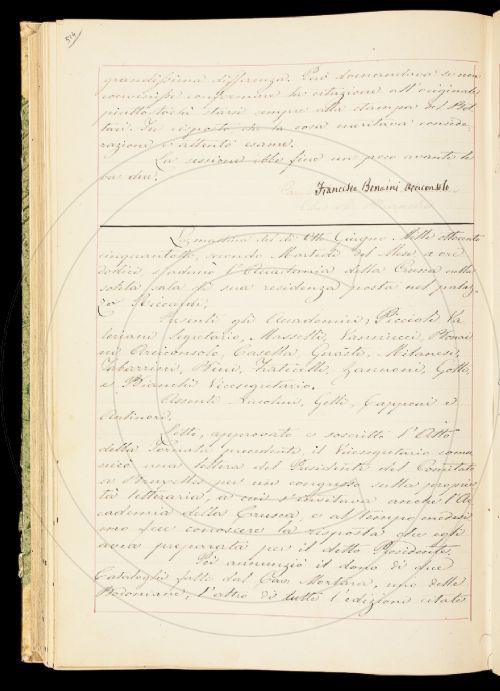 514
grandissima differenza. Però domandava se non
convenisse conformare la citazione all'originale
piuttostoché starsi sempre alla stampa del Bot-
tari. Fu risposto che la cosa meritava conside-
razione e attento esame.
La sessione ebbe fine un poco avanti le
ore due.
Francesco Bonaini Arciconsolo
La mattina del dì Otto Giugno Mille ottocento
cinquantotto, secondo Martedì del Mese a ore
dodici, s'adunò l'Accademia della Crusca nella
solita sala di sua residenza posta nel palaz-
zo Riccardi;
Presenti gli Accademici, Piccioli, Va-
leriani Segretario, Masselli, Vannucci, Bonai-
ni Arciconsolo, Casella, Guasti, Milanesi,
Tabarrini, Bini, Fraticelli, Zannoni, Gotti,
e Bianchi Vicesegretario.
Assenti Arcangeli, Gelli, Capponi e
Antinori.
Letto, approvato e soscritto l'Atto
della Tornata precedente, il Vicesegretario comu-
nicò una lettera del Presidente del Comitato
a Bruxelles per un congresso sulla proprie-
tà letteraria, a cui s'invitava anche l'Ac-
cademia della Crusca, e al tempo medesi-
mo fece conoscere la risposta che egli
avea preparata per il detto Presidente.
Poi annunziò il dono di due
Cataloghi fatti dal Cav. Mortara, uno delle
Bodoniane, l'altro di tutte l'edizioni citate